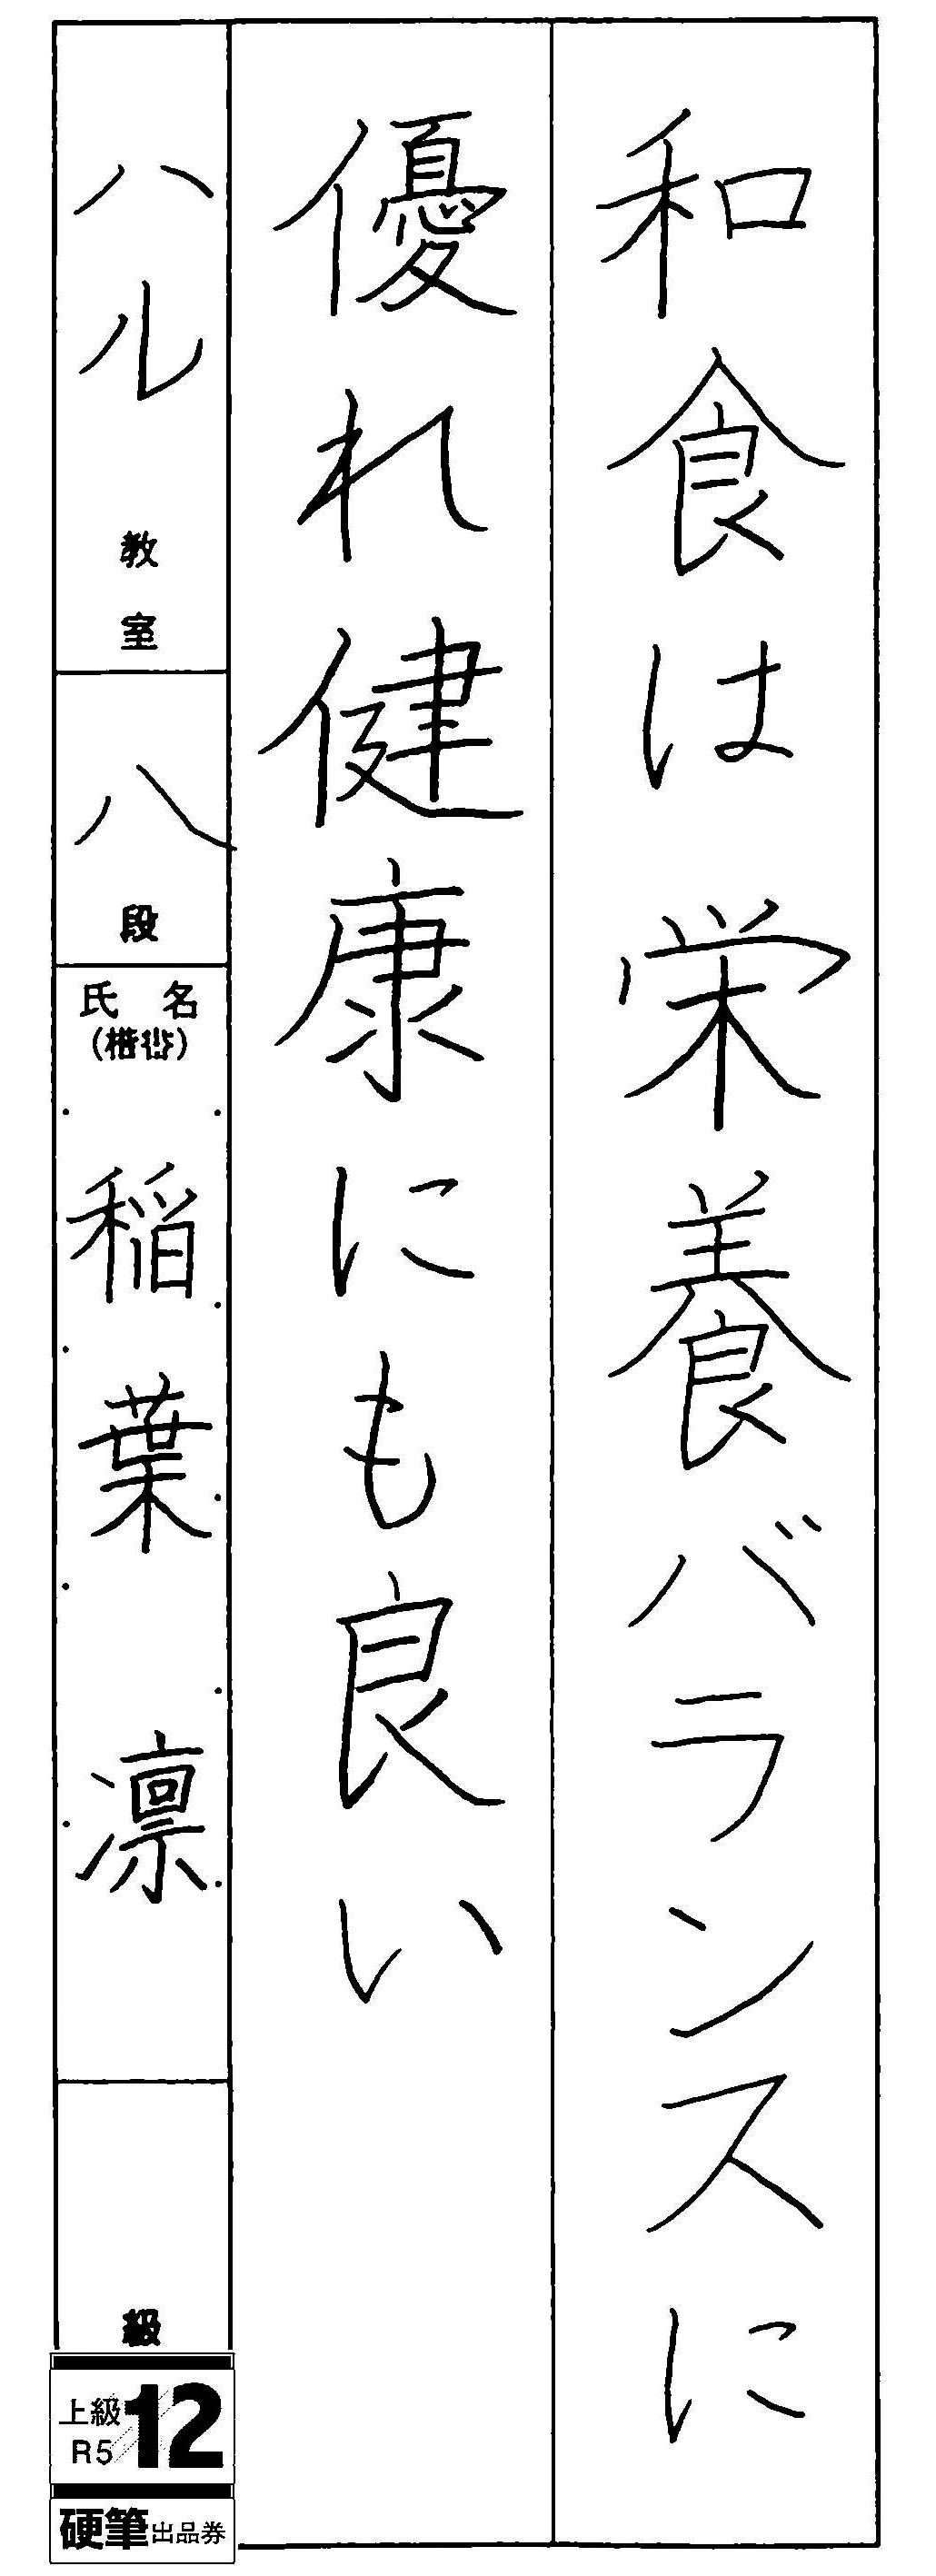 和食は栄養バランスに
優れ健康にも良い
ハル教室
八段
氏名
稲葉凛
級
上級
R5
12
硬筆出品券